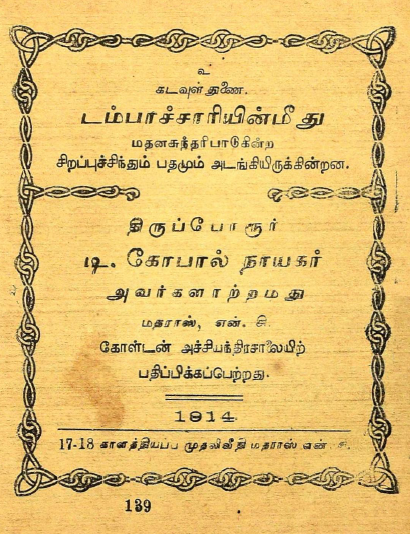 உ
கடவுள் துணை.
டம்பாச்சாரியின்மீது
மதனசுந்தரிபாடுகின்ற
சிறப்புச்சிந்தும் பதமும் அடங்கியிருக்கின்றன.
திருப்போரூர்
டி. கோபால் நாயகர்
அவர்களாற்றமது
மதராஸ், என். சி.
கோள்டன் அச்சியந்திரசாலையிற்
பதிப்பிக்கப்பெற்றது.
1914
17-18 காளத்தியப்ப முதலிவீதி மதராஸ் என். சி.
139